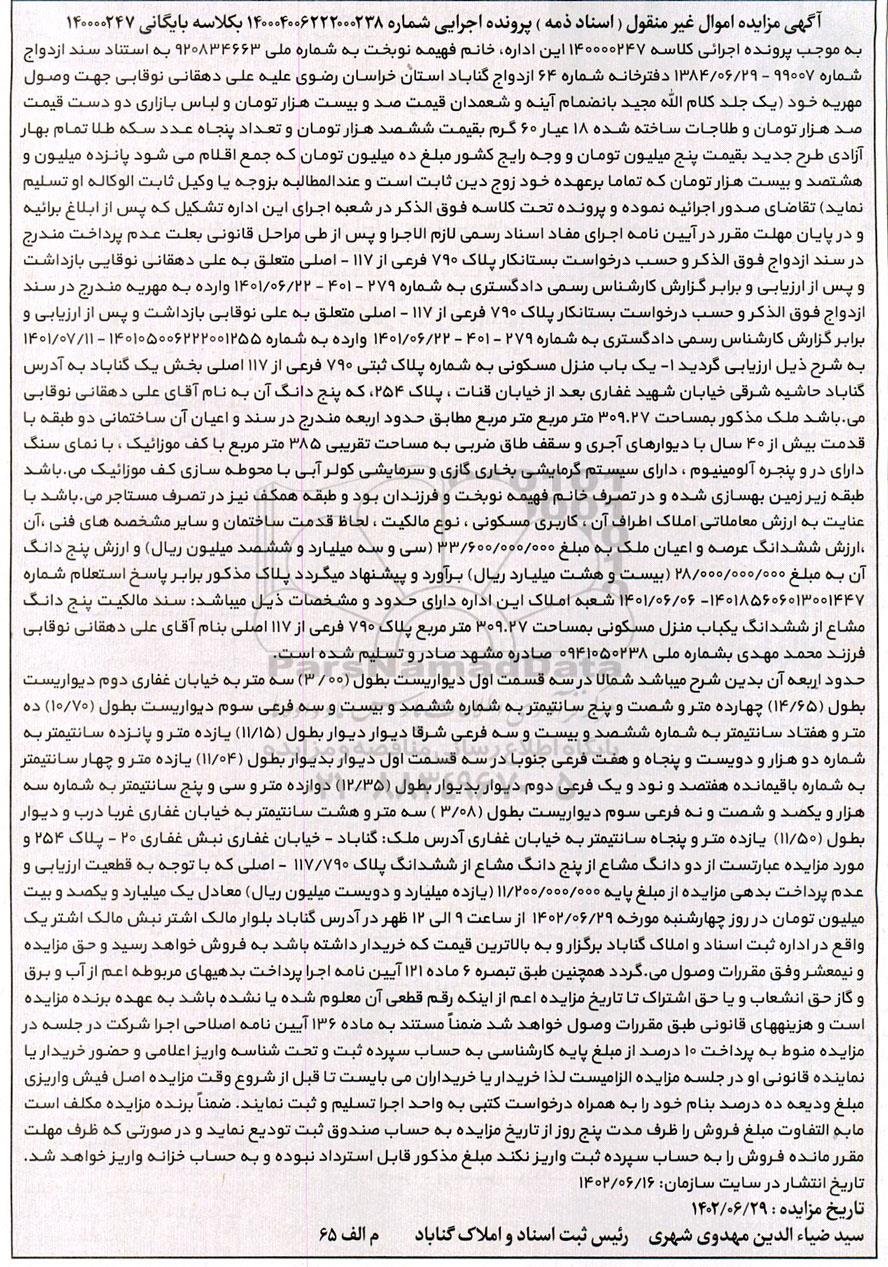 آگهی مزایده اموال غیر منقول ( اسناد ذمه ) پرونده اجرایی شماره ۱۴۰۰۰۴۰۰۶۲۲۲۰۰۰۲۳۸ بکلاسه بایگانی ۱۴۰۰۰۰۲۴۷
به موجب پرونده اجرائی کلاسه ۱۴۰۰۰۰۲۴۷ این اداره، خانم فهیمه نوبخت به شماره ملی ۹۲۰۸۳۴۶۶۳ به استناد سند ازدواج
شماره ۹۹۰۰۷ - ۱۳۸۴/۰۶/۲۹ دفترخانه شماره ۶۴ ازدواج گناباد استان خراسان رضوی علیه علی دهقانی نوقابی جهت وصول
مهریه خود (یک جلد کلام الله مجید بانضمام آینه و شعمدان قیمت صد و بیست هزار تومان و لباس بازاری دو دست قیمت
صد هزار تومان و طلاجات ساخته شده ۱۸ عیار ۶۰ گرم بقیمت ششصد هزار تومان و تعداد پنجاه عدد سکه طلا تمام بهار
آزادی طرح جدید بقیمت پنج میلیون تومان و وجه رایج کشور مبلغ ده میلیون تومان که جمع اقلام می شود پانزده میلیون و
هشتصد و بیست هزار تومان که تماما برعهده خود زوج دین ثابت است و عندالمطالبه بزوجه یا وکیل ثابت الوکاله او تسلیم
نماید) تقاضای صدور اجرائیه نموده و پرونده تحت کلاسه فوق الذکر در شعبه اجرای این اداره تشکیل که پس از ابلاغ برائیه
و در پایان مهلت مقرر در آیین نامه اجرای مفاد اسناد رسمی لازم الاجرا و پس از طی مراحل قانونی بعلت عدم پرداخت مندرج
در سند ازدواج فوق الذکر و حسب درخواست بستانکار پلاک ۷۹۰ فرعی از ۱۱۷ - اصلی متعلق به علی دهقانی نوقایی بازداشت
و پس از ارزیابی و برابر گزارش کارشناس رسمی دادگستری به شماره ۲۷۹ - ۴۰۱ - ۱۴۰۱/۰۶/۲۲ وارده به مهریه مندرج در سند
ازدواج فوق الذکر و حسب درخواست بستانکار پلاک ۷۹۰ فرعی از ۱۱۷ - اصلی متعلق به علی نوقابی بازداشت و پس از ارزیابی و
برابر گزارش کارشناس رسمی دادگستری به شماره ۲۷۹ - ۴۰۱ - ۱۴۰۱/۰۶/۲۲ وارده به شماره ۱۴۰۱۰۵۰۰۶۲۲۲۰۰۱۲۵۵ - ۱۴۰۱/۰۷/۱۱
به شرح ذیل ارزیابی گردید ۱- یک باب منزل مسکونی به شماره پلاک ثبتی ۷۹۰ فرعی از ۱۱۷ اصلی بخش یک گناباد به آدرس
گناباد حاشیه شرقی خیابان شهید غفاری بعد از خیابان قنات ، پلاک ۲۵۴، که پنج دانگ آن به نام آقای علی دهقانی نوقابی
می.باشد ملک مذکور بمساحت ۳۰۹.۲۷ متر مربع متر مربع مطابق حدود اربعه مندرج در سند و اعیان آن ساختمانی دو طبقه با
قدمت بیش از ۴۰ سال با دیوارهای آجری و سقف طاق ضربی به مساحت تقریبی ۳۸۵ متر مربع با کف موزائیک ، با نمای سنگ
دارای در و پنجره آلومینیوم ، دارای سیستم گرمایشی بخاری گازی و سرمایشی کولر آبی با محوطه سازی کف موزائیک می.باشد
طبقه زیر زمین بهسازی شده و در تصرف خانم فهیمه نوبخت و فرزندان بود و طبقه همکف نیز در تصرف مستاجر می.باشد با
عنایت به ارزش معاملاتی املاک اطراف آن ، کاربری مسکونی ، نوع مالکیت ، لحاظ قدمت ساختمان و سایر مشخصه های فنی ،آن
،ارزش ششدانگ عرصه و اعیان ملک به مبلغ ۳۳/۶۰۰/۰۰۰/۰۰۰ (سی و سه میلیارد و ششصد میلیون ریال) و ارزش پنج دانگ
آن به مبلغ ۲۸/۰۰۰/۰۰۰/۰۰۰ (بیست و هشت میلیارد ریال) برآورد و پیشنهاد میگردد پلاک مذکور برابر پاسخ استعلام شماره
۱۴۰۱۸۵۶۰۶۰۱۳۰۰۱۴۴۷- ۱۴۰۱/۰۶/۰۶ شعبه املاک این اداره دارای حدود و مشخصات ذیل میباشد: سند مالکیت پنج دانگ
مشاع از ششدانگ یکباب منزل مسکونی بمساحت ۳۰۹.۲۷ متر مربع پلاک ۷۹۰ فرعی از ۱۱۷ اصلی بنام آقای علی دهقانی نوقابی
فرزند محمد مهدی بشماره ملی ۰۹۴۱۰۵۰۲۳۸ صادره مشهد صادر و تسلیم شده است.
حدود اربعه آن بدین شرح میباشد شمالا در سه قسمت اول دیواریست بطول (۳/۰۰) سه متر به خیابان غفاری دوم دیواریست
بطول (۱۴/۶۵) چهارده متر و شصت و پنج سانتیمتر به شماره ششصد و بیست و سه فرعی سوم دیواریست بطول (۱۰/۷۰) ده
متر و هفتاد سانتیمتر به شماره ششصد و بیست و سه فرعی شرقا دیوار دیوار بطول (۱۱/۱۵) یازده متر و پانزده سانتیمتر به
شماره دو هزار و دویست و پنجاه و هفت فرعی جنوبا در سه قسمت اول دیوار بدیوار بطول (۱۱/۰۴) یازده متر و چهار سانتیمتر
به شماره باقیمانده هفتصد و نود و یک فرعی دوم دیوار بدیوار بطول (۱۲/۳۵) دوازده متر و سی و پنج سانتیمتر به شماره سه
هزار و یکصد و شصت و نه فرعی سوم دیواریست بطول (۳/۰۸ ) سه متر و هشت سانتیمتر به خیابان غفاری غربا درب و دیوار
بطول (۱۱/۵۰) یازده متر و پنجاه سانتیمتر به خیابان غفاری آدرس ملک: گناباد - خیابان غفاری نبش غفاری ۲۰ - پلاک ۲۵۴ و
مورد مزایده عبارتست از دو دانگ مشاع از پنج دانگ مشاع از ششدانگ پلاک ۱۱۷/۷۹۰ - اصلی که با توجه به قطعیت ارزیابی و
عدم پرداخت بدهی مزایده از مبلغ پایه ۱۱/۲۰۰/۰۰۰/۰۰۰ (یازده میلیارد و دویست میلیون ریال) معادل یک میلیارد و یکصد و بیت
میلیون تومان در روز چهارشنبه مورخه ۱۴۰۲/۰۶/۲۹ از ساعت ۹ الی ۱۲ ظهر در آدرس گناباد بلوار مالک اشتر نبش مالک اشتر یک
واقع در اداره ثبت اسناد و املاک گناباد برگزار و به بالاترین قیمت که خریدار داشته باشد به فروش خواهد رسید و حق مزایده
و نیمعشر وفق مقررات وصول می.گردد همچنین طبق تبصره ۶ ماده ۱۲۱ آیین نامه اجرا پرداخت بدهیهای مربوطه اعم از آب و برق
و گاز حق انشعاب و یا حق اشتراک تا تاریخ مزایده اعم از اینکه رقم قطعی آن معلوم شده یا نشده باشد به عهده برنده مزایده
است و هزینههای قانونی طبق مقررات وصول خواهد شد ضمناً مستند به ماده ۱۳۶ آیین نامه اصلاحی اجرا شرکت در جلسه در
مزایده منوط به پرداخت ۱۰ درصد از مبلغ پایه کارشناسی به حساب سپرده ثبت و تحت شناسه واریز اعلامی و حضور خریدار یا
نماینده قانونی او در جلسه مزایده الزامیست لذا خریدار یا خریداران می بایست تا قبل از شروع وقت مزایده اصل فیش واریزی
مبلغ ودیعه ده درصد بنام خود را به همراه درخواست کتبی به واحد اجرا تسلیم و ثبت نمایند. ضمناً برنده مزایده مکلف است
مابه التفاوت مبلغ فروش را ظرف مدت پنج روز از تاریخ مزایده به حساب صندوق ثبت تودیع نماید و در صورتی که ظرف مهلت
مقرر مانده فروش را به حساب سپرده ثبت واریز نکند مبلغ مذکور قابل استرداد نبوده و به حساب خزانه واریز خواهد شد.
تاریخ انتشار در سایت سازمان: ۱۴۰۲/۰۶/۱۶
تاریخ مزایده : ۱۴۰۲/۰۶/۲۹
سید ضیاء الدین مهدوی شهری رئیس ثبت اسناد و املاک گناباد م الف ۶۵
ParsNamadData
پایگاه اطلاع رسانی مناقصه و مزایده